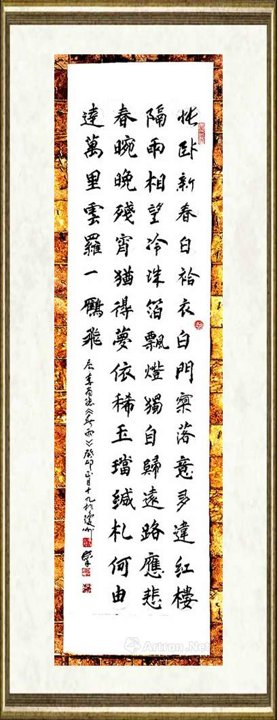 悵卧新春白袷衣白門寥落意多違紅樓
隔雨相望冷珠箔飄燈獨自歸遠路應悲
春晼晚殘宵猶得夢依稀玉璫緘札何由
達萬里雲羅一鴈飛 李商隐《春雨》癸卯正月十九於
Artron.Net